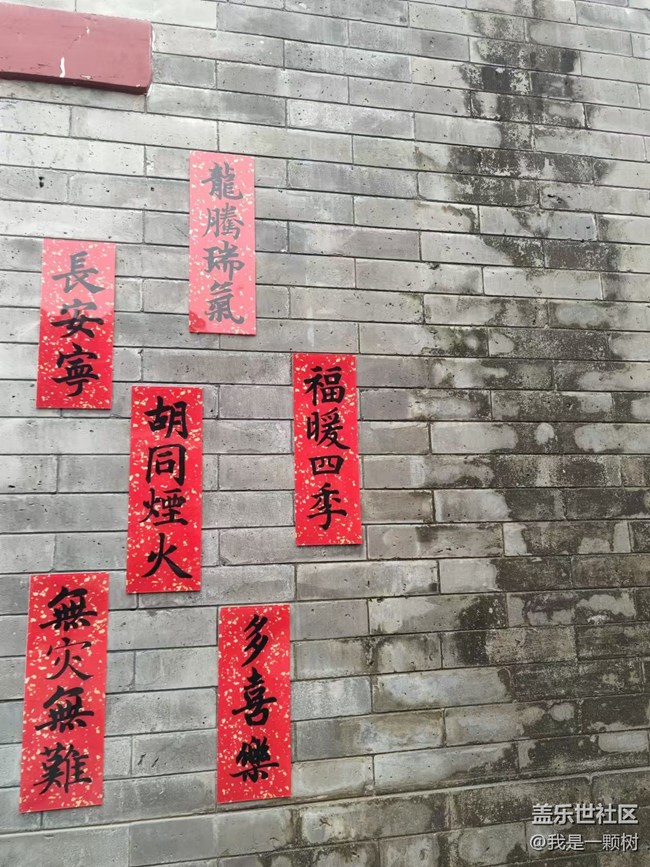 龍騰瑞氣
長安寧
福暖四季
胡同煙火
無灾無難
多喜樂
盖乐世社区
@我是一颗树